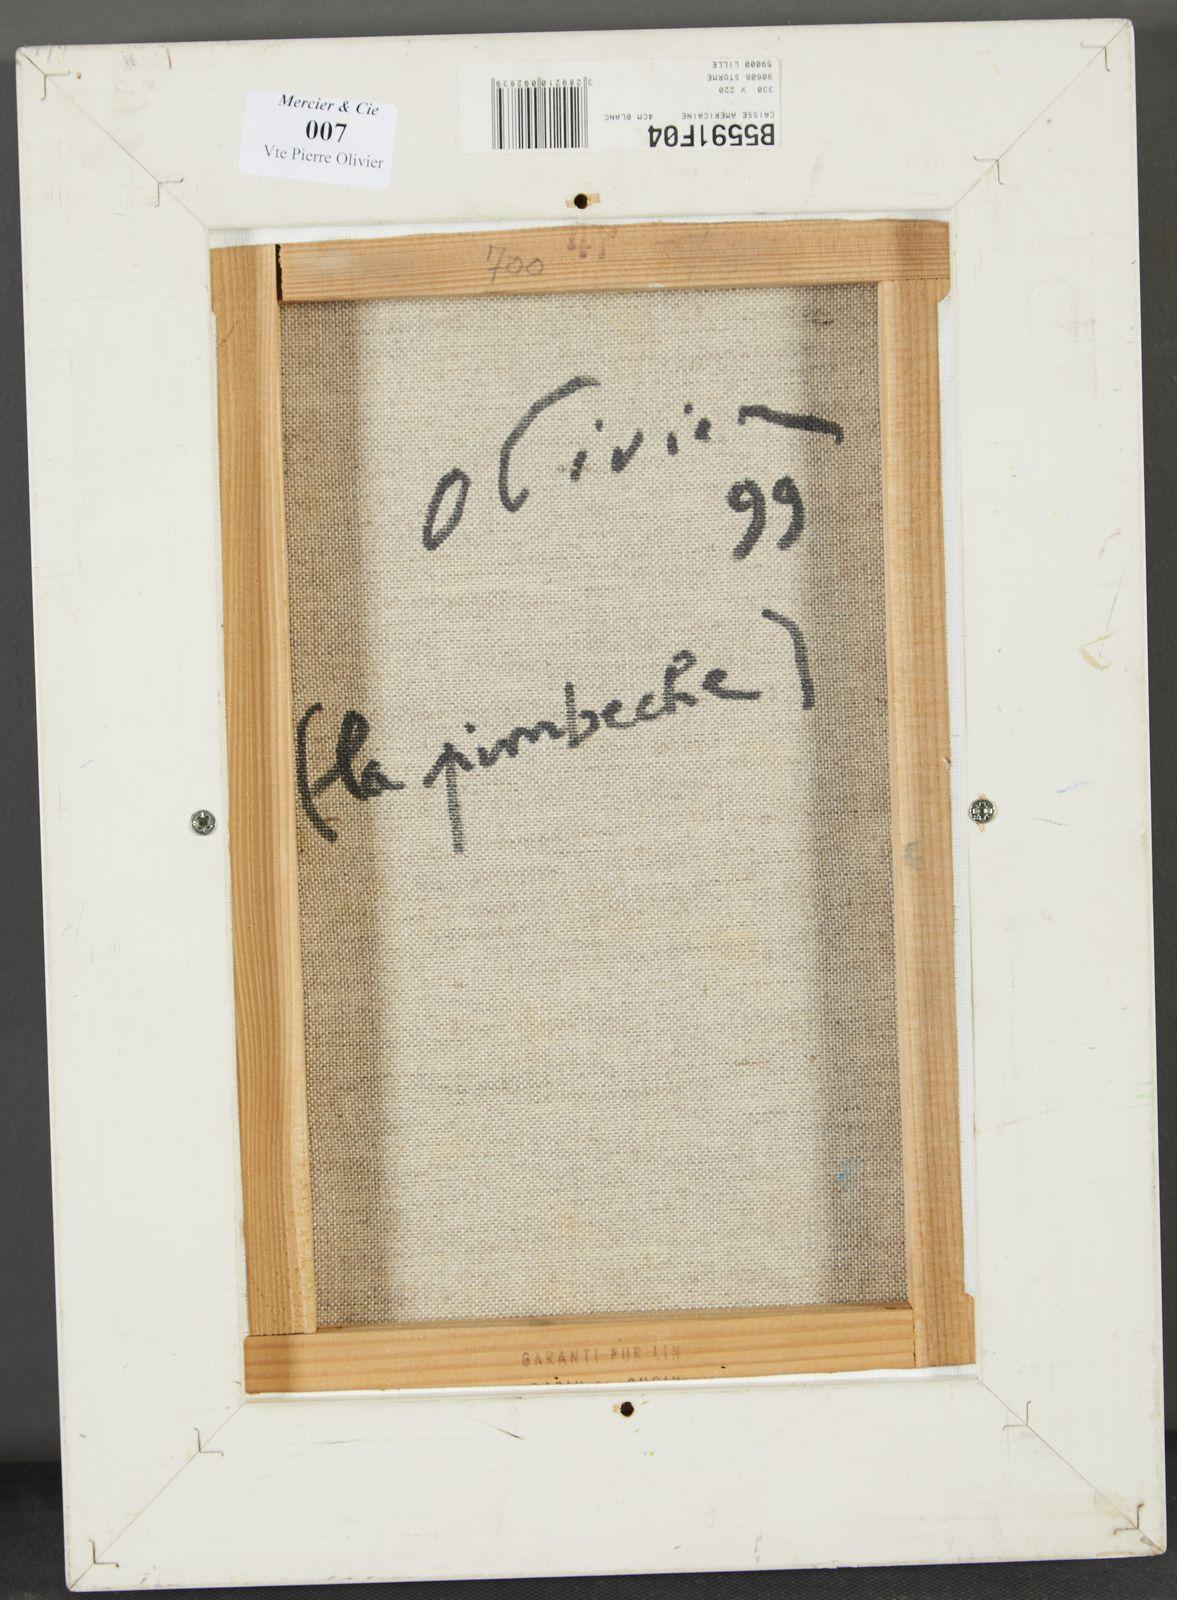 Mercier & Cie
007
Vte Pierre Olivier
B5591F04
CAISSE AMERICAINE 4CM BLANC
330 X 220
90606 STORME
59000 LILLE
3289210092839
700
47
Olivier
99
(la pimbeche)
GARANTI PUR LIN